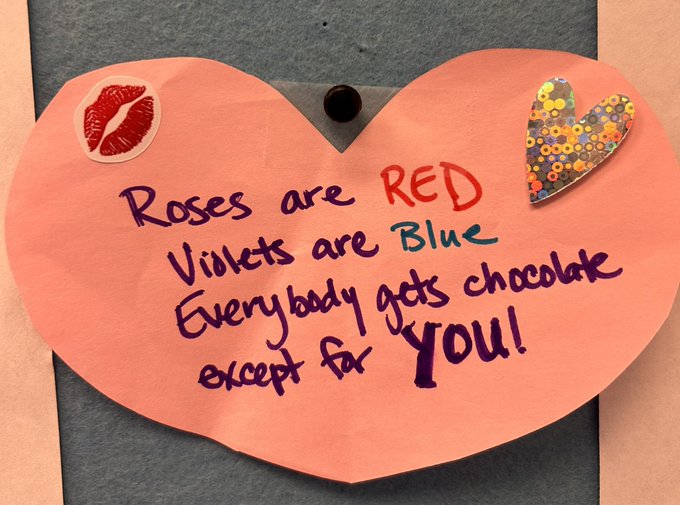 Roses are RED
Violets are Blue
Everybody gets chocolate
except for YOU!